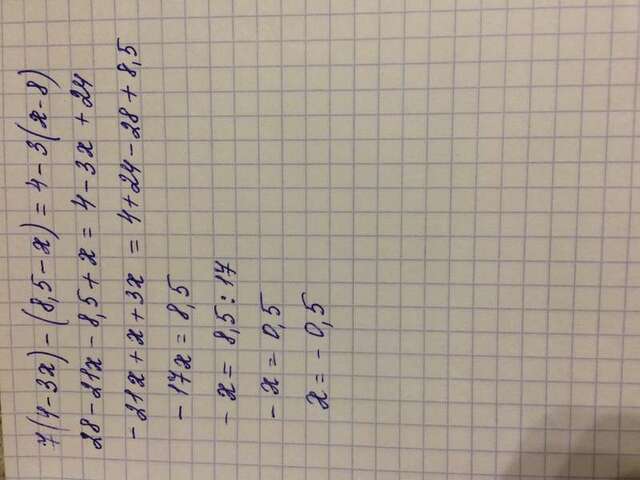 7(4-3x)-(8,5-x)=4-3(x-8)
28-21x-8,5+x=4-3x+24
-21x+x+3x=4+24-28+8,5
-17x=8,5
-x=8,5:17
-x=0,5
x=-0,5